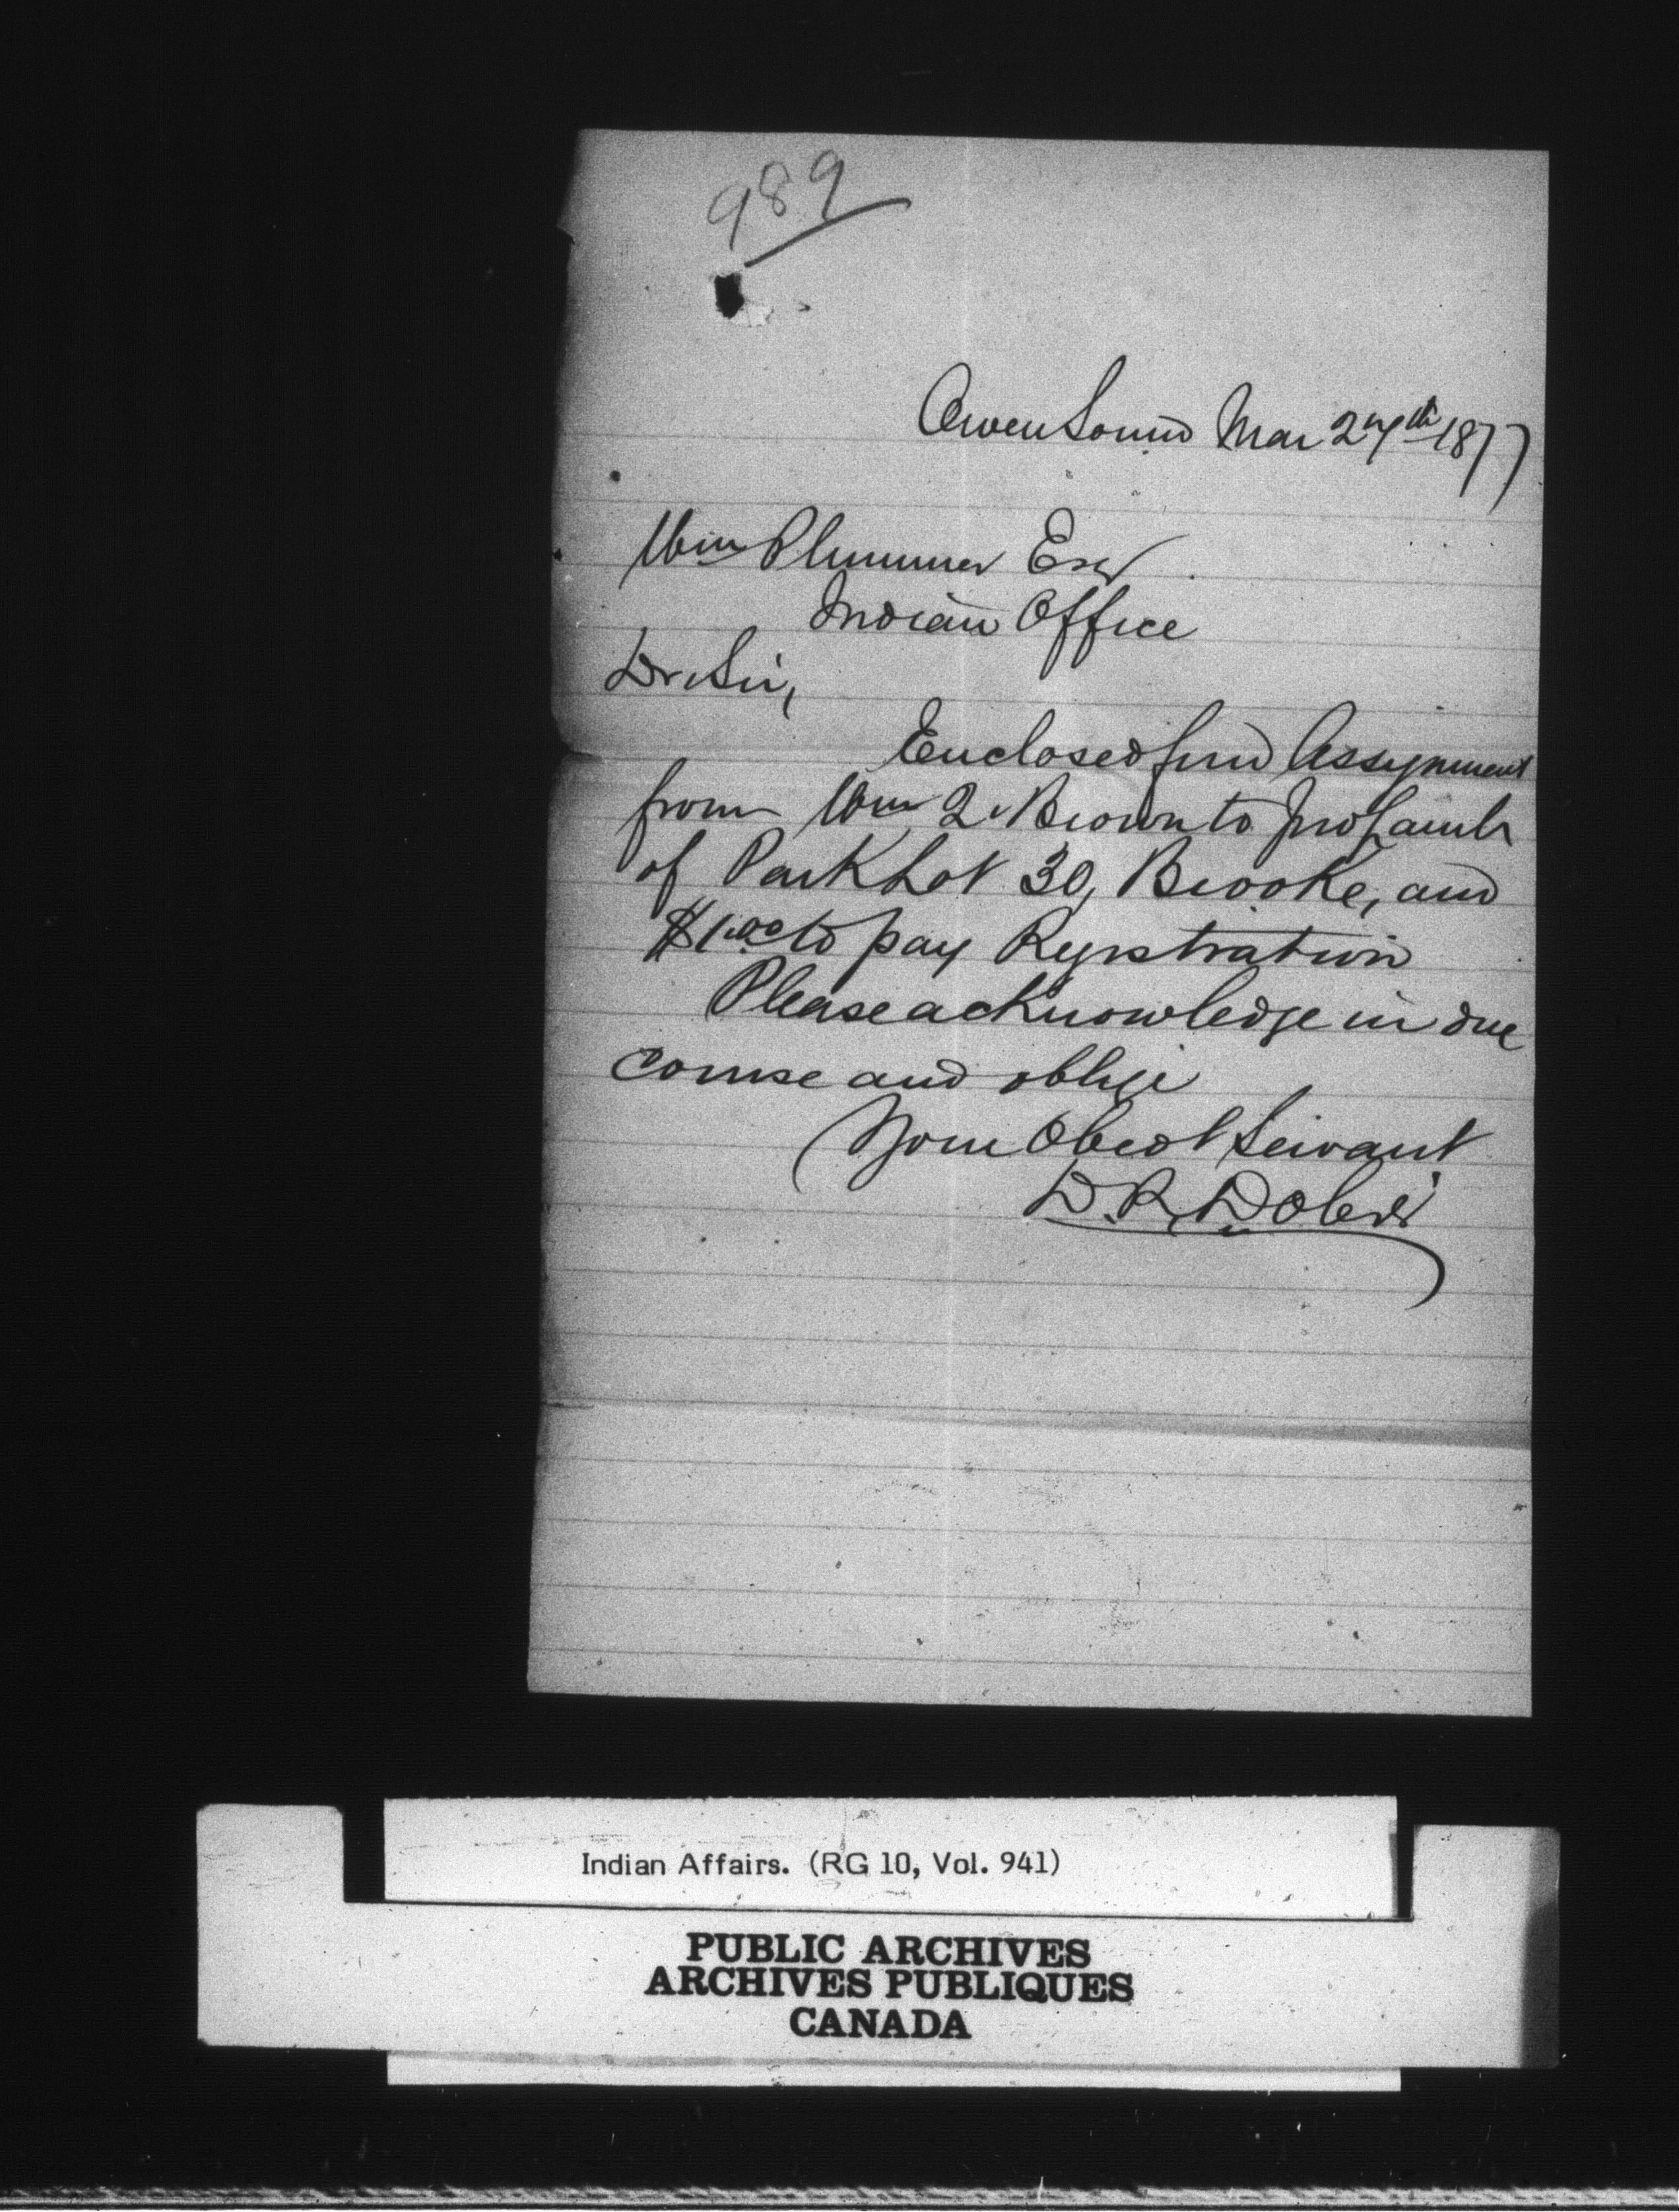 989
Owen Sound Mar 27th 1877
Wm Plummer Esq
Indian Office
Dr Sir,
Enclosed find Assignment
from Wm 2. Brown to Jno Lamb
of Park Lot 30, Brooke, and
$1.00 to pay Registration
Please acknowledge in due
course and oblige
Your Obedt Servant
D. R. Dobie
Indian Affairs. (RG 10, Vol. 941)
PUBLIC ARCHIVES
ARCHIVES PUBLIQUES
CANADA